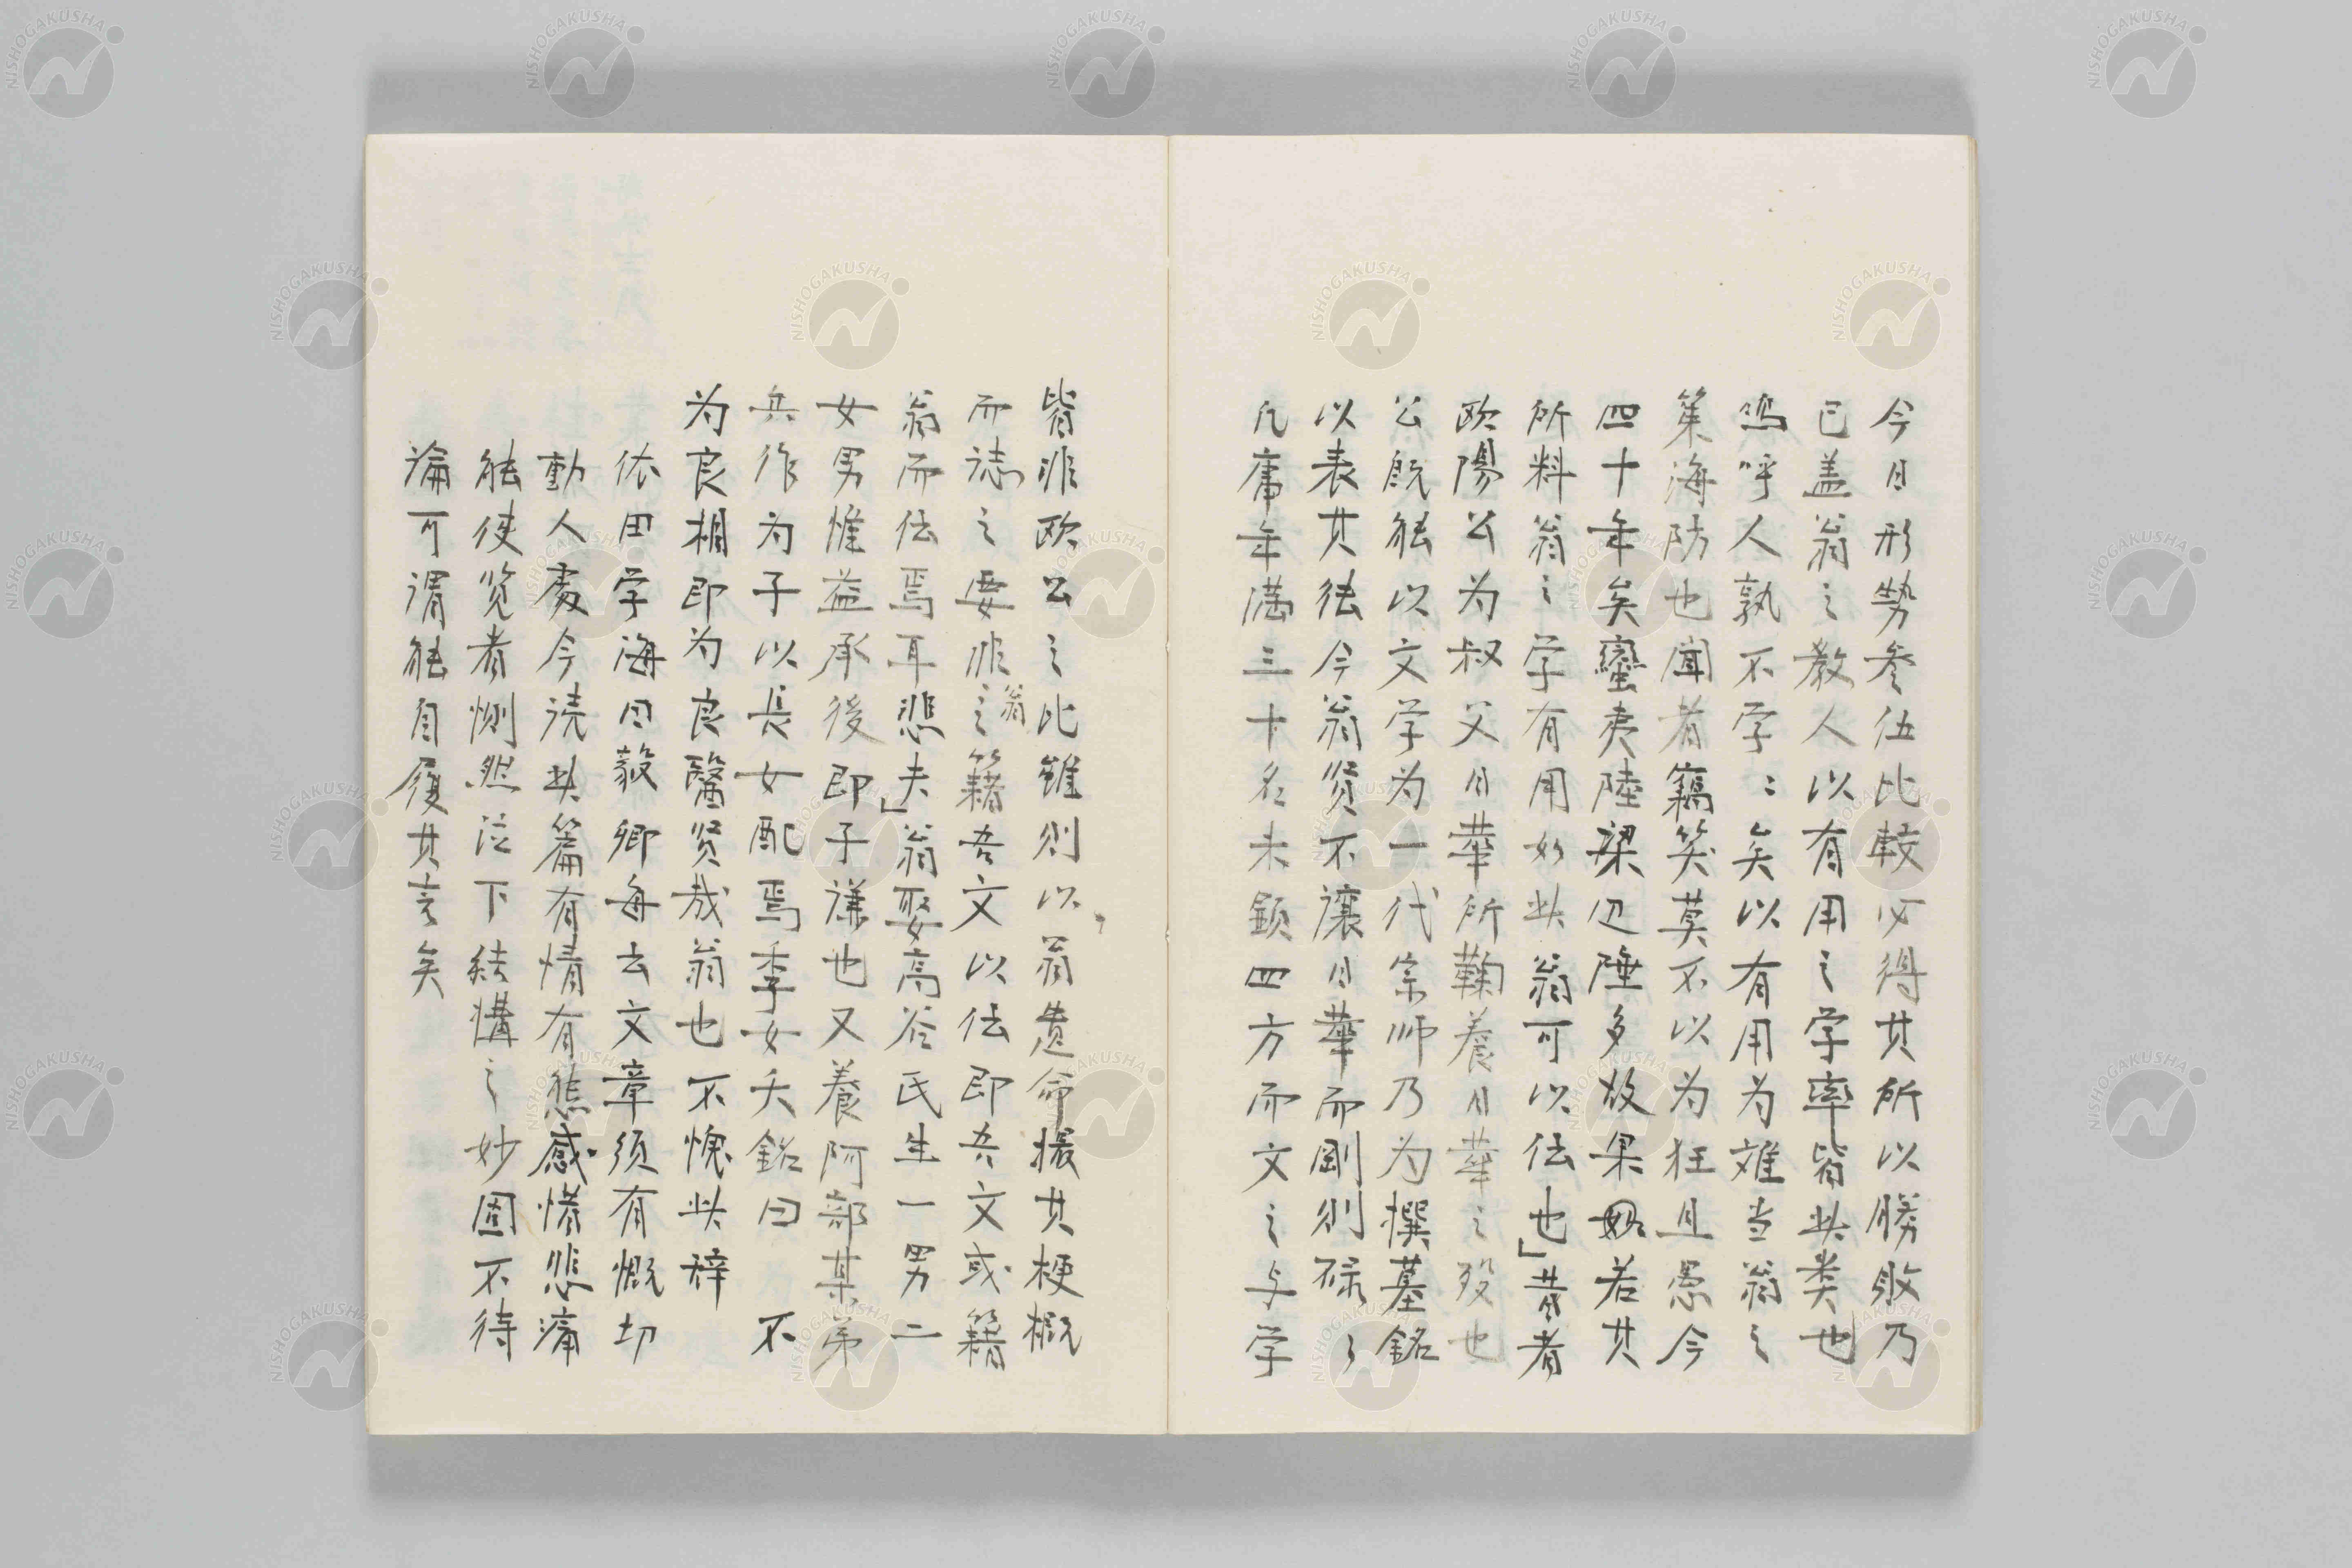 今日形勢参伍比較必得其所以勝敗乃
已盖翁之教人以有用之学率皆此类也
嗚呼人孰不学〻矣以有用为难当翁之
策海防也闻者竊笑莫不以为狂且愚今
四十年矣蠻夷陸梁辺陲多故果如若其
所料翁之学有用如此翁可以伝也」昔者
欧陽公为叔父日華所鞠養日華之殁也
公既能以文学为一代宗师乃为撰墓銘
以表其徳今翁贤不讓日華而剛則碌々
凡庸年満三十名未顕四方而文之与学
皆非欧公之比雖則以翁遺命掇其梗概
而誌之要非翁之籍吾文以伝即吾文或籍
翁而伝焉耳悲夫」翁娶高谷氏生一男二
女男惟益承後即子謙也又養阿部某弟
兵作为子以長女配焉季女夭銘曰 不
为良相即为良醫贤哉翁也不愧此辞
依田学海曰毅卿每云文章须有慨切
動人處今读此篇有情有態感慨悲痛
能使览者惻然泣下結構之妙固不待
論可謂能自履其言矣
NISHOGAKUSHA